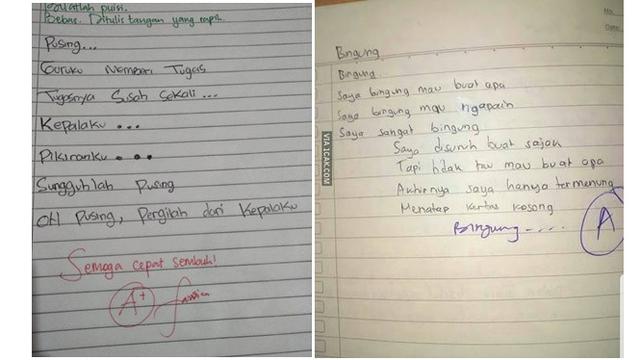 puisi.
Bebas. Ditulis tangan yang rapi.
Pusing...
Guruku Memberi Tugas
Tugasnya Susah Sekali...
Kepalaku...
Pikiranku...
Sungguhlah Pusing
Oh Pusing, Pergilah dari Kepalaku
Semoga cepat sembuh!
A+
Bingung
Bingung
Saya bingung mau buat apa
Saya bingung mau ngapain
Saya sangat bingung
Saya disuruh buat sajak
Tapi tidak tau mau buat apa
Akhirnya saya hanya termenung
Menatap kertas kosong
Bingung....
A
VIA 1CAK.COM
No.
Date